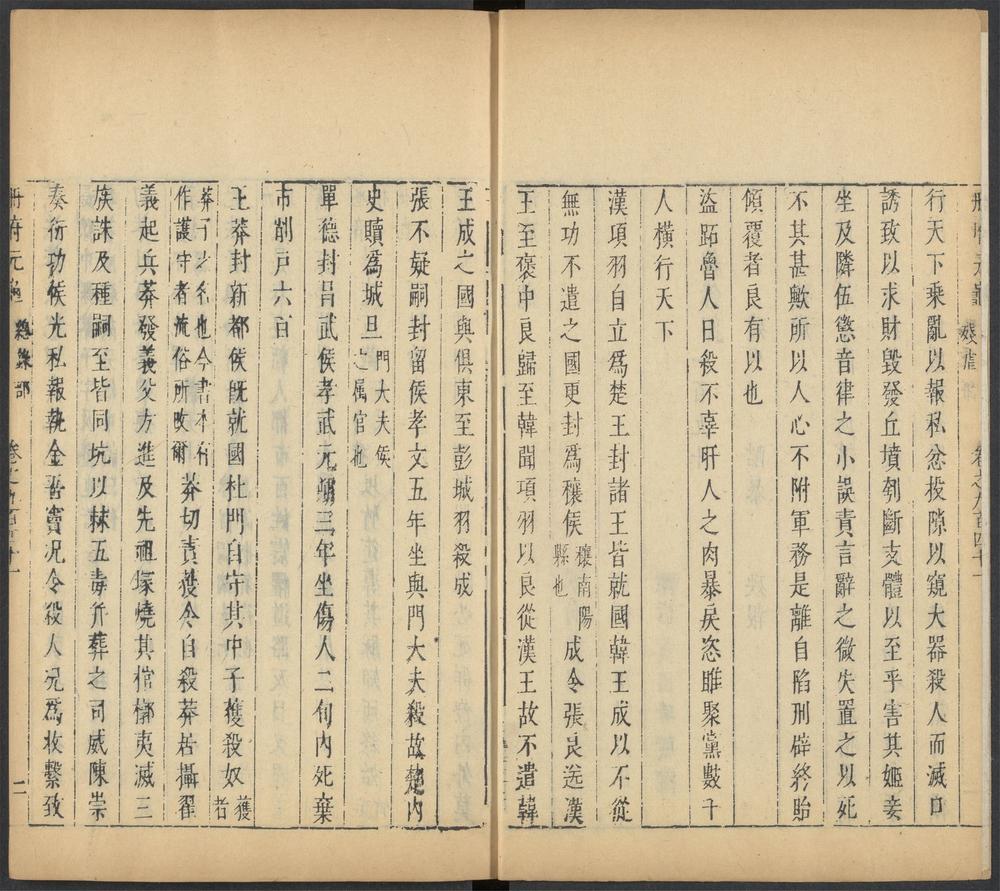 冊府元龜 殘虐 卷之九百四十一
行天下乘亂以報私忿投隙以窺大器殺人而滅口
誘致以求財毀發丘墳刳斷支體以至乎害其姬妾
坐及隣伍懲音律之小誤責言辭之微失置之以死
不其甚歟所以人心不附軍務是離自陷刑辟終貽
傾覆者良有以也
盜跖魯人日殺不辜肝人之肉暴戾恣睢聚黨數千
人橫行天下
漢項羽自立爲楚王封諸王皆就國韓王成以不從
無功不遣之國更封爲穰侯穰南陽縣也成令張良送漢
王至褒中良歸至韓聞項羽以良從漢王故不遣韓
王成之國與俱東至彭城羽殺成
張不疑嗣封留侯孝文五年坐與門大夫殺故楚內
史贖爲城旦門大夫侯之属官也
單德封昌武侯孝武元朔三年坐傷人二旬內死棄
市削戶六百
王莽封新都侯旣就國杜門自守其中子獲殺奴獲者
莽子之名也今書本有作護字者流俗所改爾莽切責獲令自殺莽居攝翟
義起兵莽發義父方進及先祖塚燒其棺槨夷滅三
族誅及種嗣至皆同坑以棘五毒并葬之司威陳崇
奏衍功侯光私報執金吾竇況令殺人況爲收繫致
冊府元龜 總錄部 卷之九百四十一 二